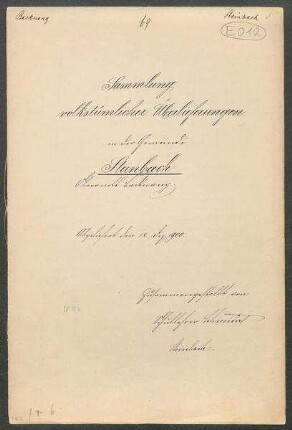 Backnang
69
Steinbach
E 012
Sammlung
volkstümlicher Überlieferungen
in der Gemeinde
Steinbach
Oberamts Backnang.
Abgeliefert den 18. Dez. 1900.
Zusammengestellt von
Schullehrer
Steinbach.